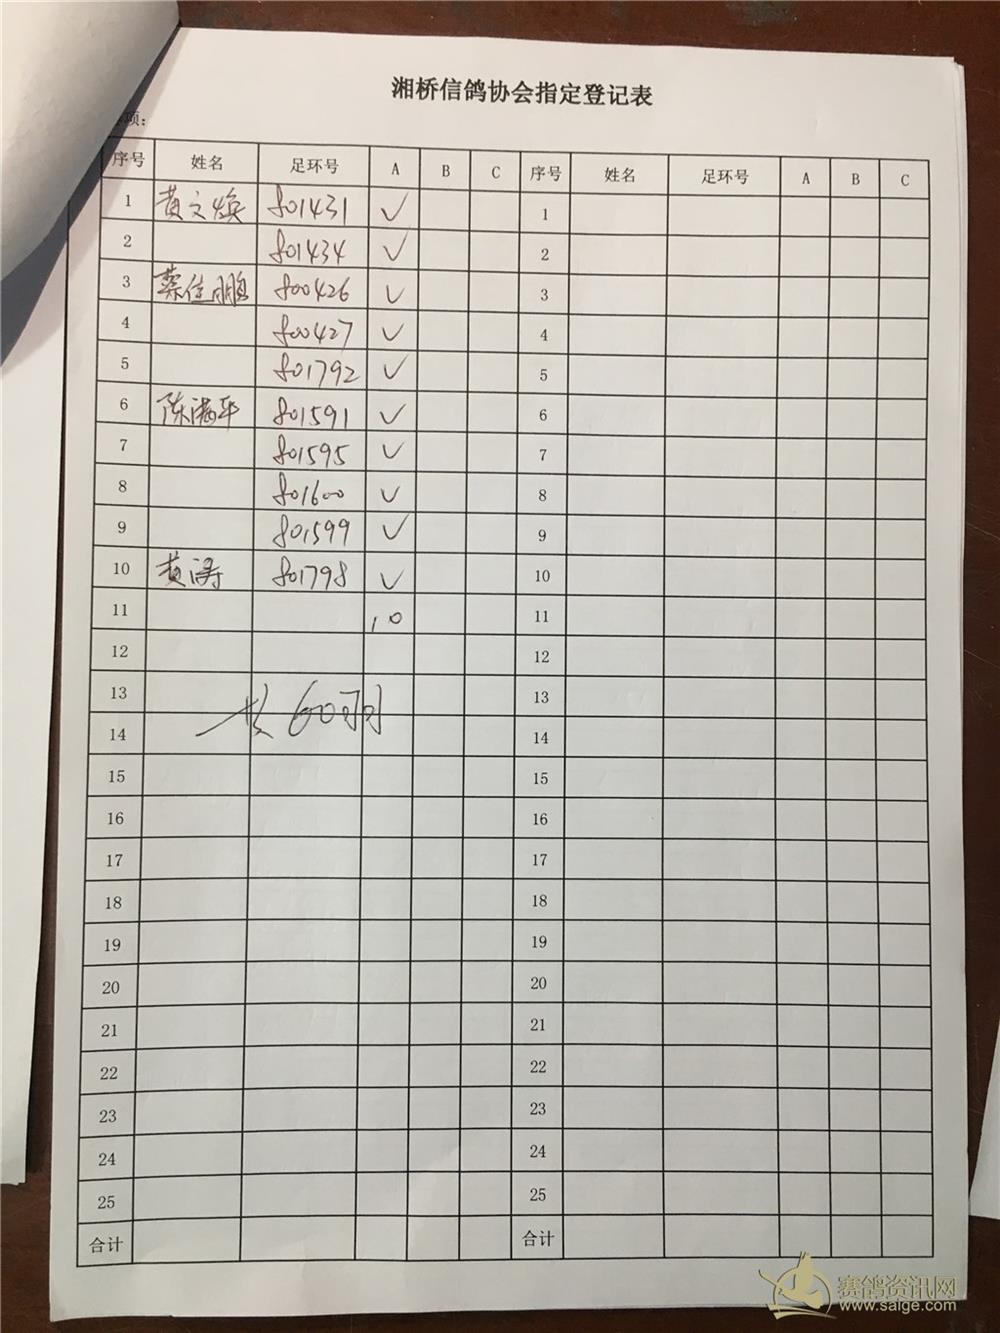 湘桥信鸽协会指定登记表
项:
序号 姓名 足环号 A B C 序号 姓名 足环号 A B C
1 黄文焕 801431 ✓ 1
2 801434 ✓ 2
3 蔡佳鹏 800426 ✓ 3
4 800427 ✓ 4
5 801792 ✓ 5
6 陈满平 801591 ✓ 6
7 801595 ✓ 7
8 801600 ✓ 8
9 801599 ✓ 9
10 黄涛 801798 ✓ 10
11 10 11
12 12
13 13
共60羽
14 14
15 15
16 16
17 17
18 18
19 19
20 20
21 21
22 22
23 23
24 24
25 25
合计 合计
赛鸽资讯网
www.saige.com